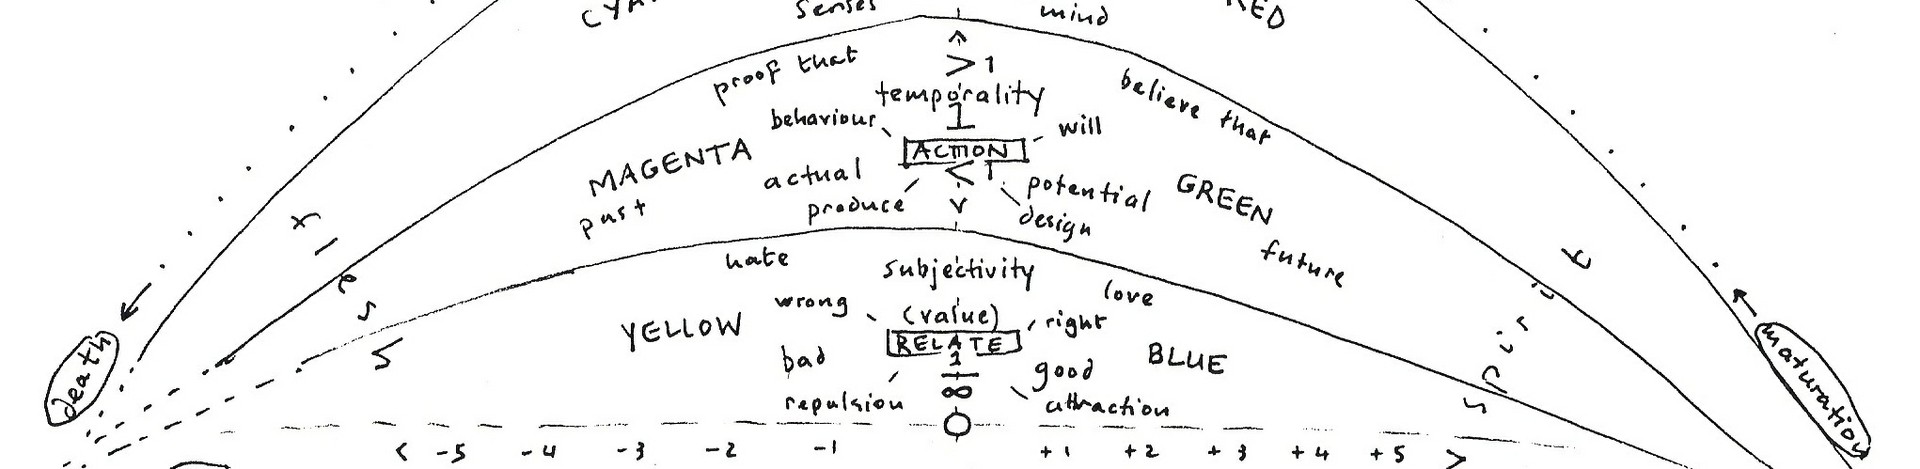 senses mind RED
proof that
> 1
temporality
1
believe that
behaviour
will
ACTION
MAGENTA
actual
< 1
potential
GREEN
past
produce
design
future
hate
subjectivity
love
wrong
(value)
right
YELLOW
RELATE
BLUE
bad
1
good
∞
repulsion
attraction
death
maturation
O
< -5 -4 -3 -2 -1 +1 +2 +3 +4 +5 >